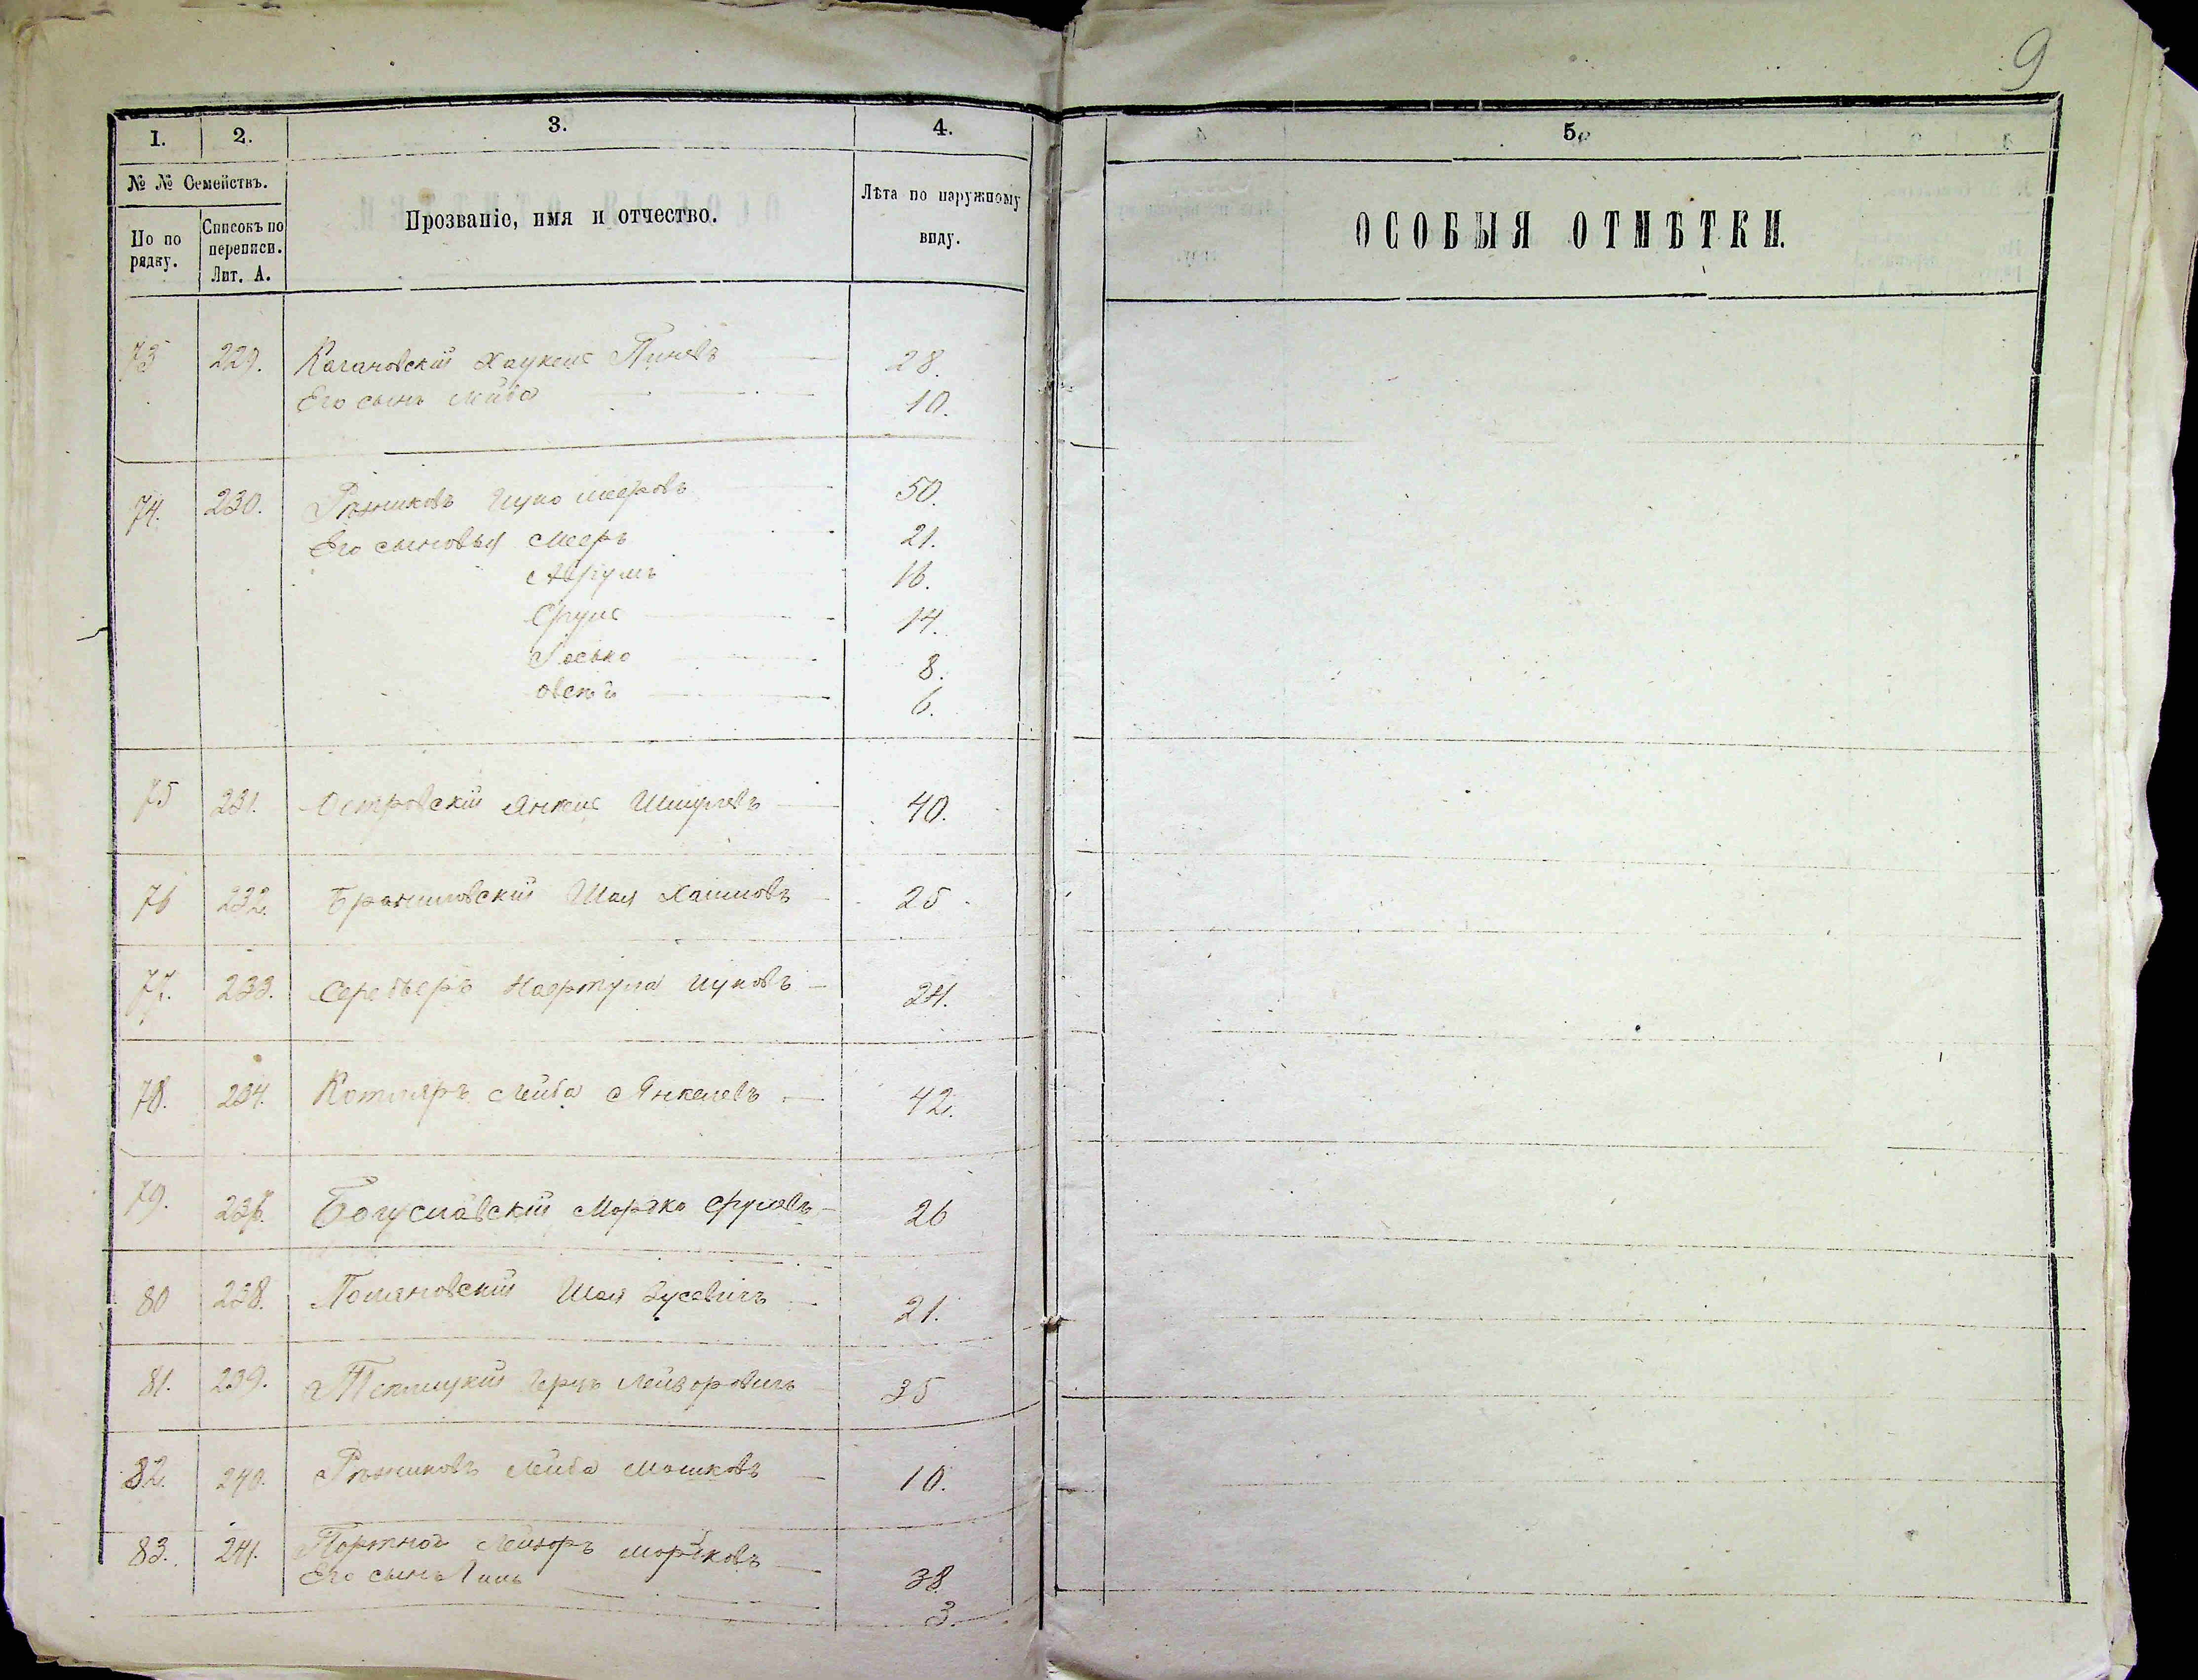 9
1. 2. 3. 4. 5.
№ № Семействъ.
По по рядку.
Списокъ по переписи. Лит. А.
Прозваніе, имя и отчество.
Лѣта по наружному виду.
ОСОБЫЯ ОТМѢТКИ.
73 229. Кагановскій Пиневъ 28.
Его сынъ Лейба 10.
74. 230. Рѣзниковъ Ицко Мееровъ 50.
Его сыновья Мееръ 21.
Абрумъ 16.
Сруль 14.
Іосько 8.
Овсѣй 6.
75 231. Островскій Янкель Шмулевъ 40.
76 232. Браиловскій Шая Хаимовъ 25.
77. 233. Сереберъ Ицковъ 24.
78. 234. Котляръ Лейба Янкелевъ 42.
79. Богуславскій Мордко Срулевъ 26
80 238. Поляновскій Шая Зусевичъ 21.
81. 239. Теплицкій Герчъ Лейзоровичъ 35
82. 240. Рѣзниковъ Лейба Мошковъ 10.
83. 241. Портной Лейзоръ Мордковъ 38
Его сынъ 3.